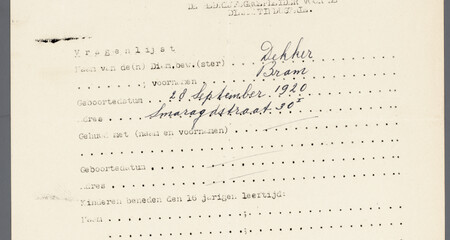 Vragenlijst
Naam van de(n) Dien.bew.(ster) Dekker
; voornamen Bram
Geboortedatum 28 September 1920
Adres Smaragdstraat 30 I
Gehuwd met (naam en voornamen)
Geboortedatum
Adres
Kinderen beneden den 16 jarigen leeftijd:
Naam ;
;